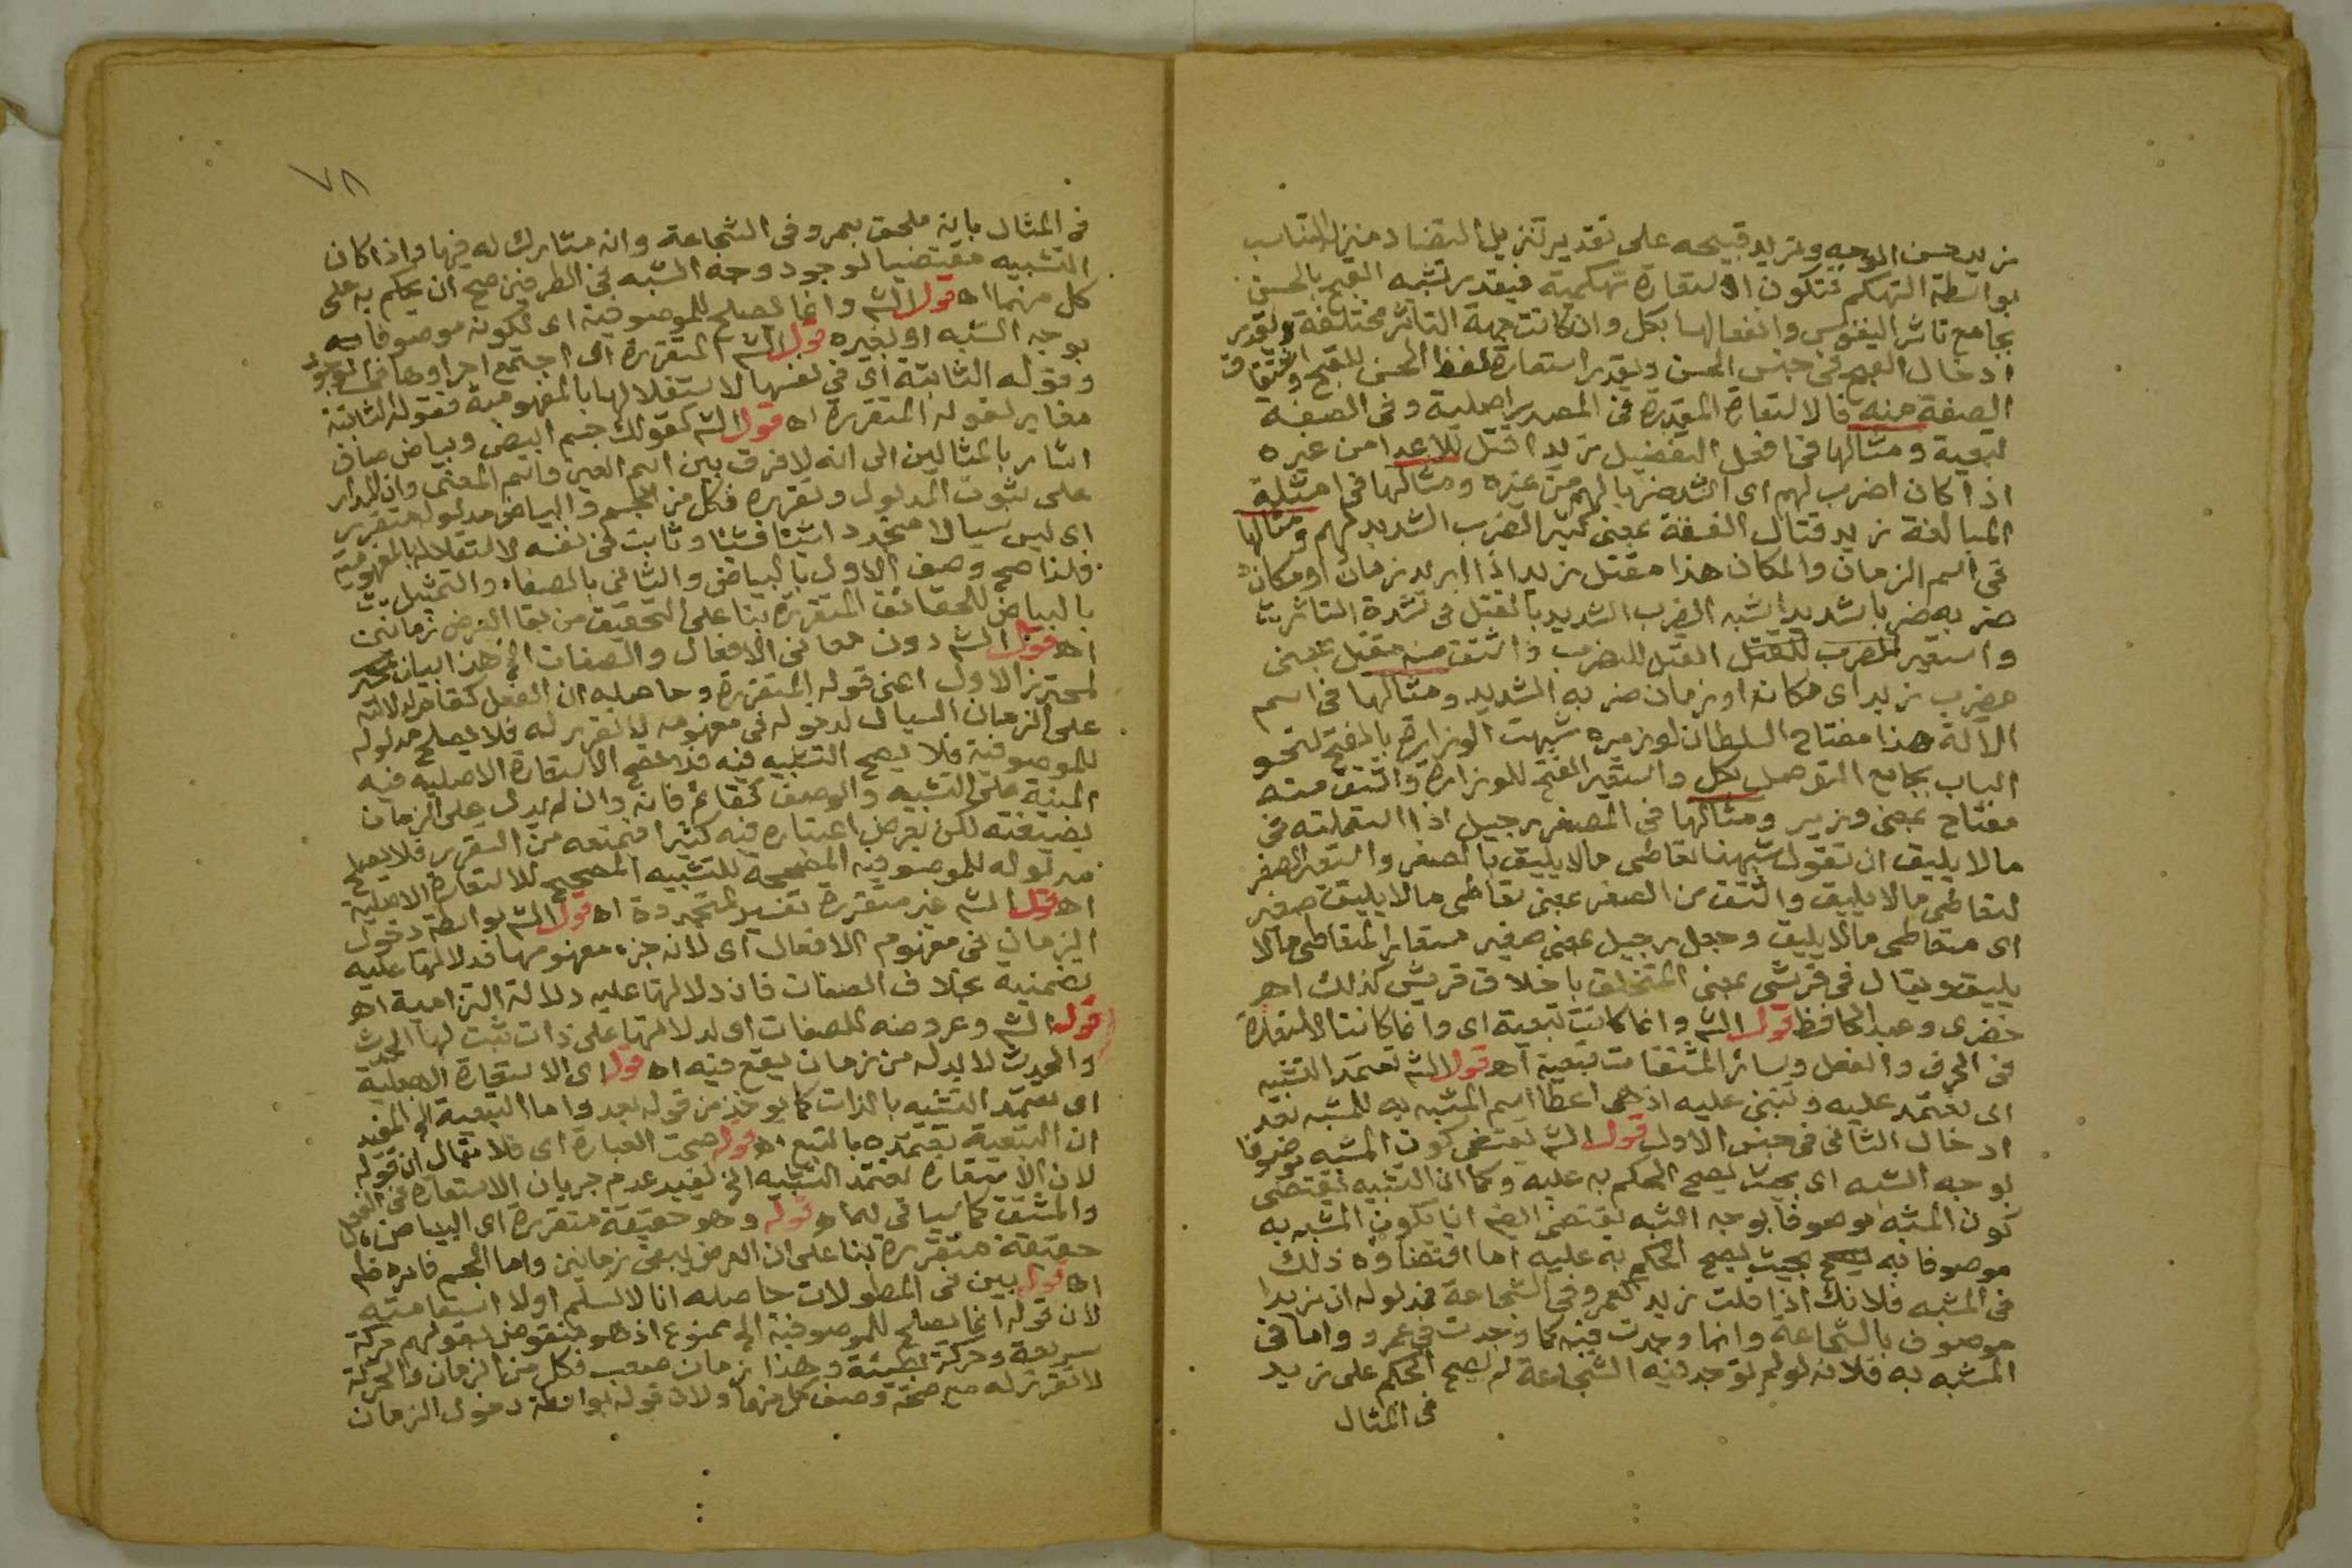 زيد حسن الوجه وتريد قبيحه على تقدير تنزيل التضاد منزلة التناسب
بواسطة التهكم فتكون الاستعارة تهكمية فيقدر تشبه القبيح بالحسن
بجامع تاثر النفوس وانفعالها بكل وان كانت جهة التاثر مختلفة ويقدر
ادخال القبيح في جنس الحسن ويقدر استعارة لفظ الحسن للقبح واشتقاق
الصفة منه فالاستعارة المقدرة في المصدر اصلية وفى الصفة
تبعية ومثالها في افعل التفضيل زيد اقتل للاعدا من غيره
اذا كان اضرب لهم اى اشد ضربا لهم من غيره ومثالها في امثلة
المبالغة زيد قتال الفسقة بمعنى كثير الضرب الشديد لهم ومثالها
في اسم الزمان والمكان هذا مقتل زيد اذا اريد زمان او مكان
ضربه ضربا شديدا شبه الضرب الشديد بالقتل في شدة التاثر
واستعير القتل للضرب واشتق منه مقتل بمعنى
مضرب زيد اى مكان او زمان ضربه الشديد ومثالها في اسم
الآلة هذا مفتاح السلطان لوزيره شبهت الوزارة بالفتح لنحو
الباب بجامع التوصل بكل واستعير الفتح للوزارة واشتق منه
مفتاح بمعنى وزير ومثالها في المصغر رجيل اذا استعملته في
مالا يليق ان تقول شبهنا تعاطى مالا يليق بالصغر واستعير الصغر
لتعاطى مالا يليق واشتق من الصغر بمعنى تعاطى مالا يليق صغير
اى متعاطى مالا يليق وجعل رجيل بمعنى صغير مستعارا لمتعاطى مالا
يليق ويقال في قرشى بمعنى المتخلق باخلاق قريش كذلك اهـ
خضرى وعبد الحافظ قول الش وانما كانت تبعية اى وانما كانت الاستعارة
في الحرف والفعل وسائر المشتقات تبعية اهـ قول الش تعتمد التشبيه
اى تعتمد عليه وتبنى عليه اذ هى اعطا اسم المشبه به للمشبه بعد
ادخال الثانى في جنس الاول قول الش يقتضى كون المشبه موصوفا
بوجه الشبه اى بحيث يصح الحكم به عليه وكما ان التشبيه يقتضى
كون المشبه موصوفا بوجه الشبه يقتضى ايضا ان يكون المشبه به
موصوفا به بحيث يصح الحكم به عليه اما اقتضاؤه ذلك
في المشبه فلانك اذا قلت زيد كعمرو في الشجاعة فمدلوله ان زيدا
موصوف بالشجاعة وانها وجدت فيه كما وجدت في عمرو واما في
المشبه به فلانه لو لم توجد فيه الشجاعة لم يصح الحكم على زيد
في المثال
٧٨
في المثال بانه ملحق بعمرو في الشجاعة وانه مشارك له فيها واذا كان
التشبيه مقتضيا لوجود وجه الشبه في الطرفين صح ان يحكم به على
كل منهما اهـ قول الش وانما يصلح للموصوفية اى لكونه موصوفا
بوجه الشبه او بغيره قول الش المتقررة اى اجتمع اجزاوها في الوجود
وقوله الثابتة اى في نفسها لاستقلالها بالمفهومية فقوله الثابتة
مغاير لقوله المتقررة اهـ قول الش كقولك جسم ابيض وبياض صاف
اشار بالمثالين الى انه لا فرق بين اسم العين واسم المعنى وان المدار
على ثبوت المدلول وتقرره فكل من الجسم والبياض مدلوله متقرر
اى ليس سيالا متجدد اشيئا فشيئا وثابت في نفسه لاستقلاله بالمفهومية
فلذا صح وصف الاول بالبياض والثانى بالصفاء والتمثيل
بالبياض للحقائق المتقررة بنا على التحقيق من بقا العرض زمانين
اهـ قول الش دون معانى الافعال والصفات الخ هذا بيان
لمحترز الاول اعنى قوله المتقررة وحاصله ان الفعل كقام لدلالته
على الزمان السيال لدخوله في مفهومه لا تقرر له فلا يصلح مدلوله
للموصوفية فلا يصح التشبيه فيه فلا تصح الاستعارة الاصلية فيه
المبنية على التشبيه والوصف كقائم فانه وان لم يدل على الزمان
بصيغته لكن يعرض اعتباره فيه كثيرا فتمنعه من التقرر فلا يصلح
مدلوله للموصوفية المصححة للتشبيه المصحح للاستعارة الاصلية
اهـ قول الش غير متقررة تفسير لمتجددة اهـ قول الش بواسطة دخول
الزمان في مفهوم الافعال اى لانه جزء مفهومها فدلالتها عليه
تضمنية بخلاف الصفات فان دلالتها عليه دلالة التزامية اهـ
قوله الش وعروضه للصفات اى لدلالتها على ذات ثبت لها الحدث
والحدث لا بد له من زمان يقع فيه اهـ قوله اى الاستعارة الاصلية
اى تعتمد التشبيه بالذات كما يوخذ من قوله بعد واما التبعية الخ المفيد
ان التبعية تعتمده بالتبع اهـ قوله صحت العبارة اى فلا يقال ان قوله
لان الاستعارة تعتمد التشبيه الخ يفيد عدم جريان الاستعارة في الفعل
والمشتق كما سياتى لها اهـ قوله وهو حقيقة متقررة اى البياض
حقيقة متقررة بنا على ان العرض يبقى زمانين واما الجسم فامره ظاهر
اهـ قوله بين في المطولات حاصله انا لا نسلم اولا استقامته
لان قوله انما يصلح للموصوفية الخ ممنوع اذ هو منقوض بقولهم حركة
سريعة وحركة بطيئة وهذا زمان صعب فكل من الزمان والحركة
لا تقرر له مع صحة وصف كل منهما ولان قوله بواسطة دخول الزمان